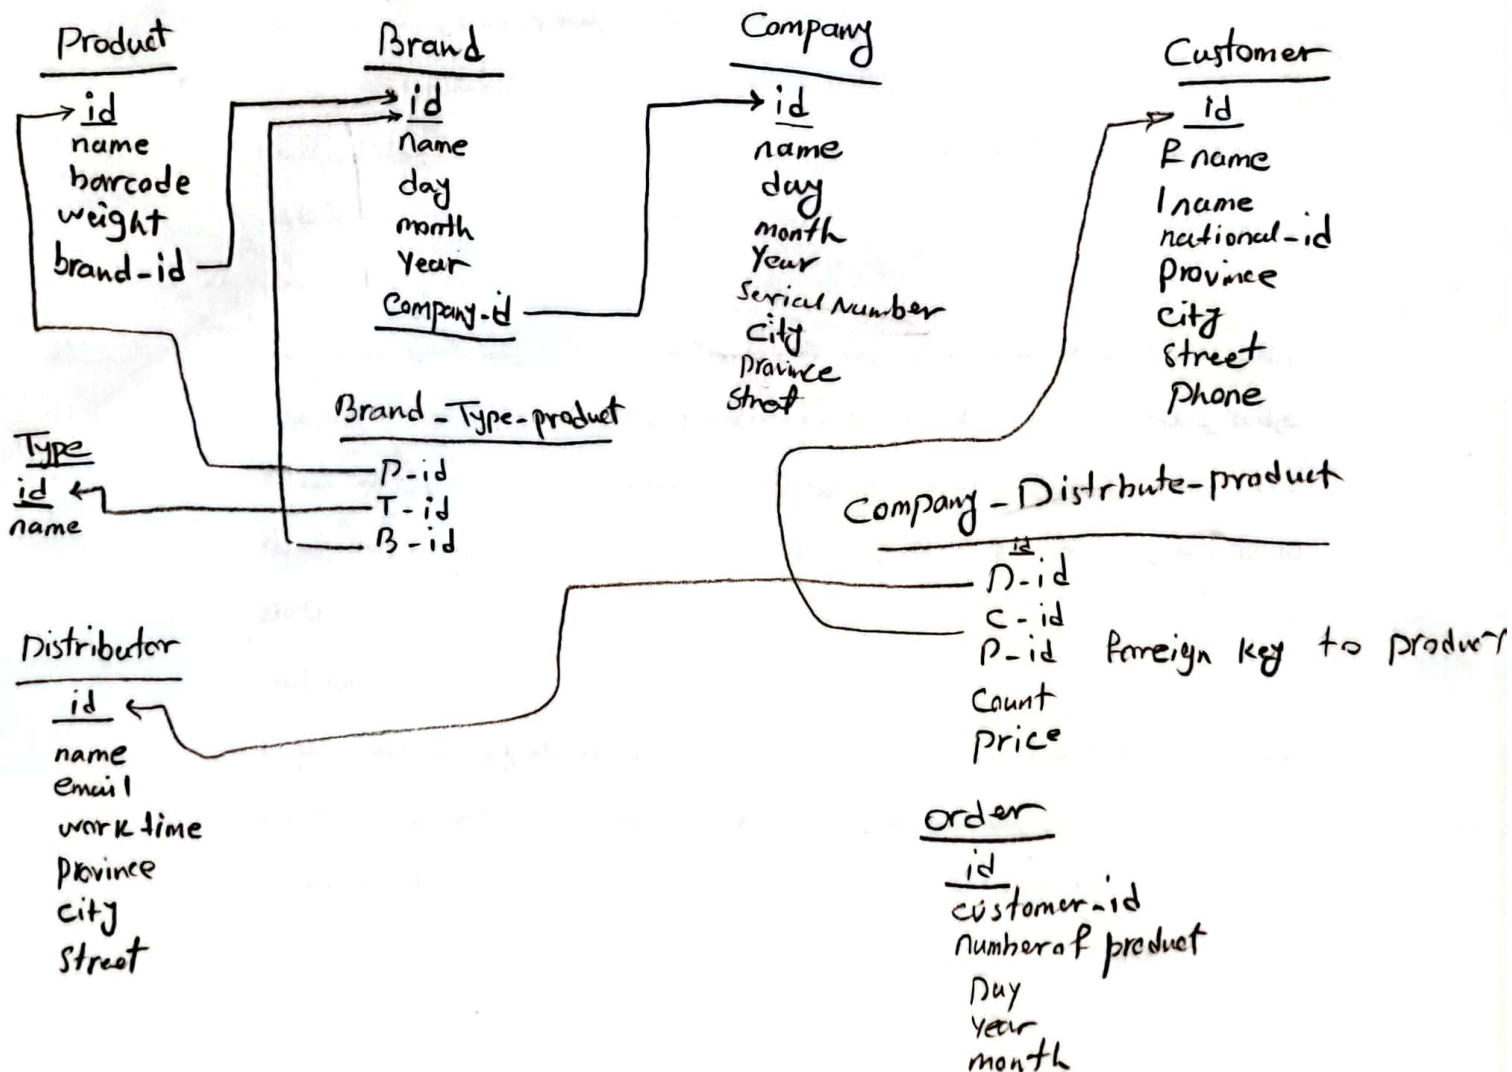 Product
id
name
barcode
weight
brand-id
Brand
id
name
day
month
Year
Company-id
Company
id
name
day
month
Year
Serial Number
City
province
Street
Customer
id
Fname
lname
national-id
Province
city
Street
Phone
Type
id
name
Brand-Type-product
P-id
T-id
B-id
Company-Distrbute-product
id
D-id
C-id
P-id foreign key to product
Count
price
Distributor
id
name
email
work time
Province
city
Street
order
id
customer-id
number of product
Day
Year
month